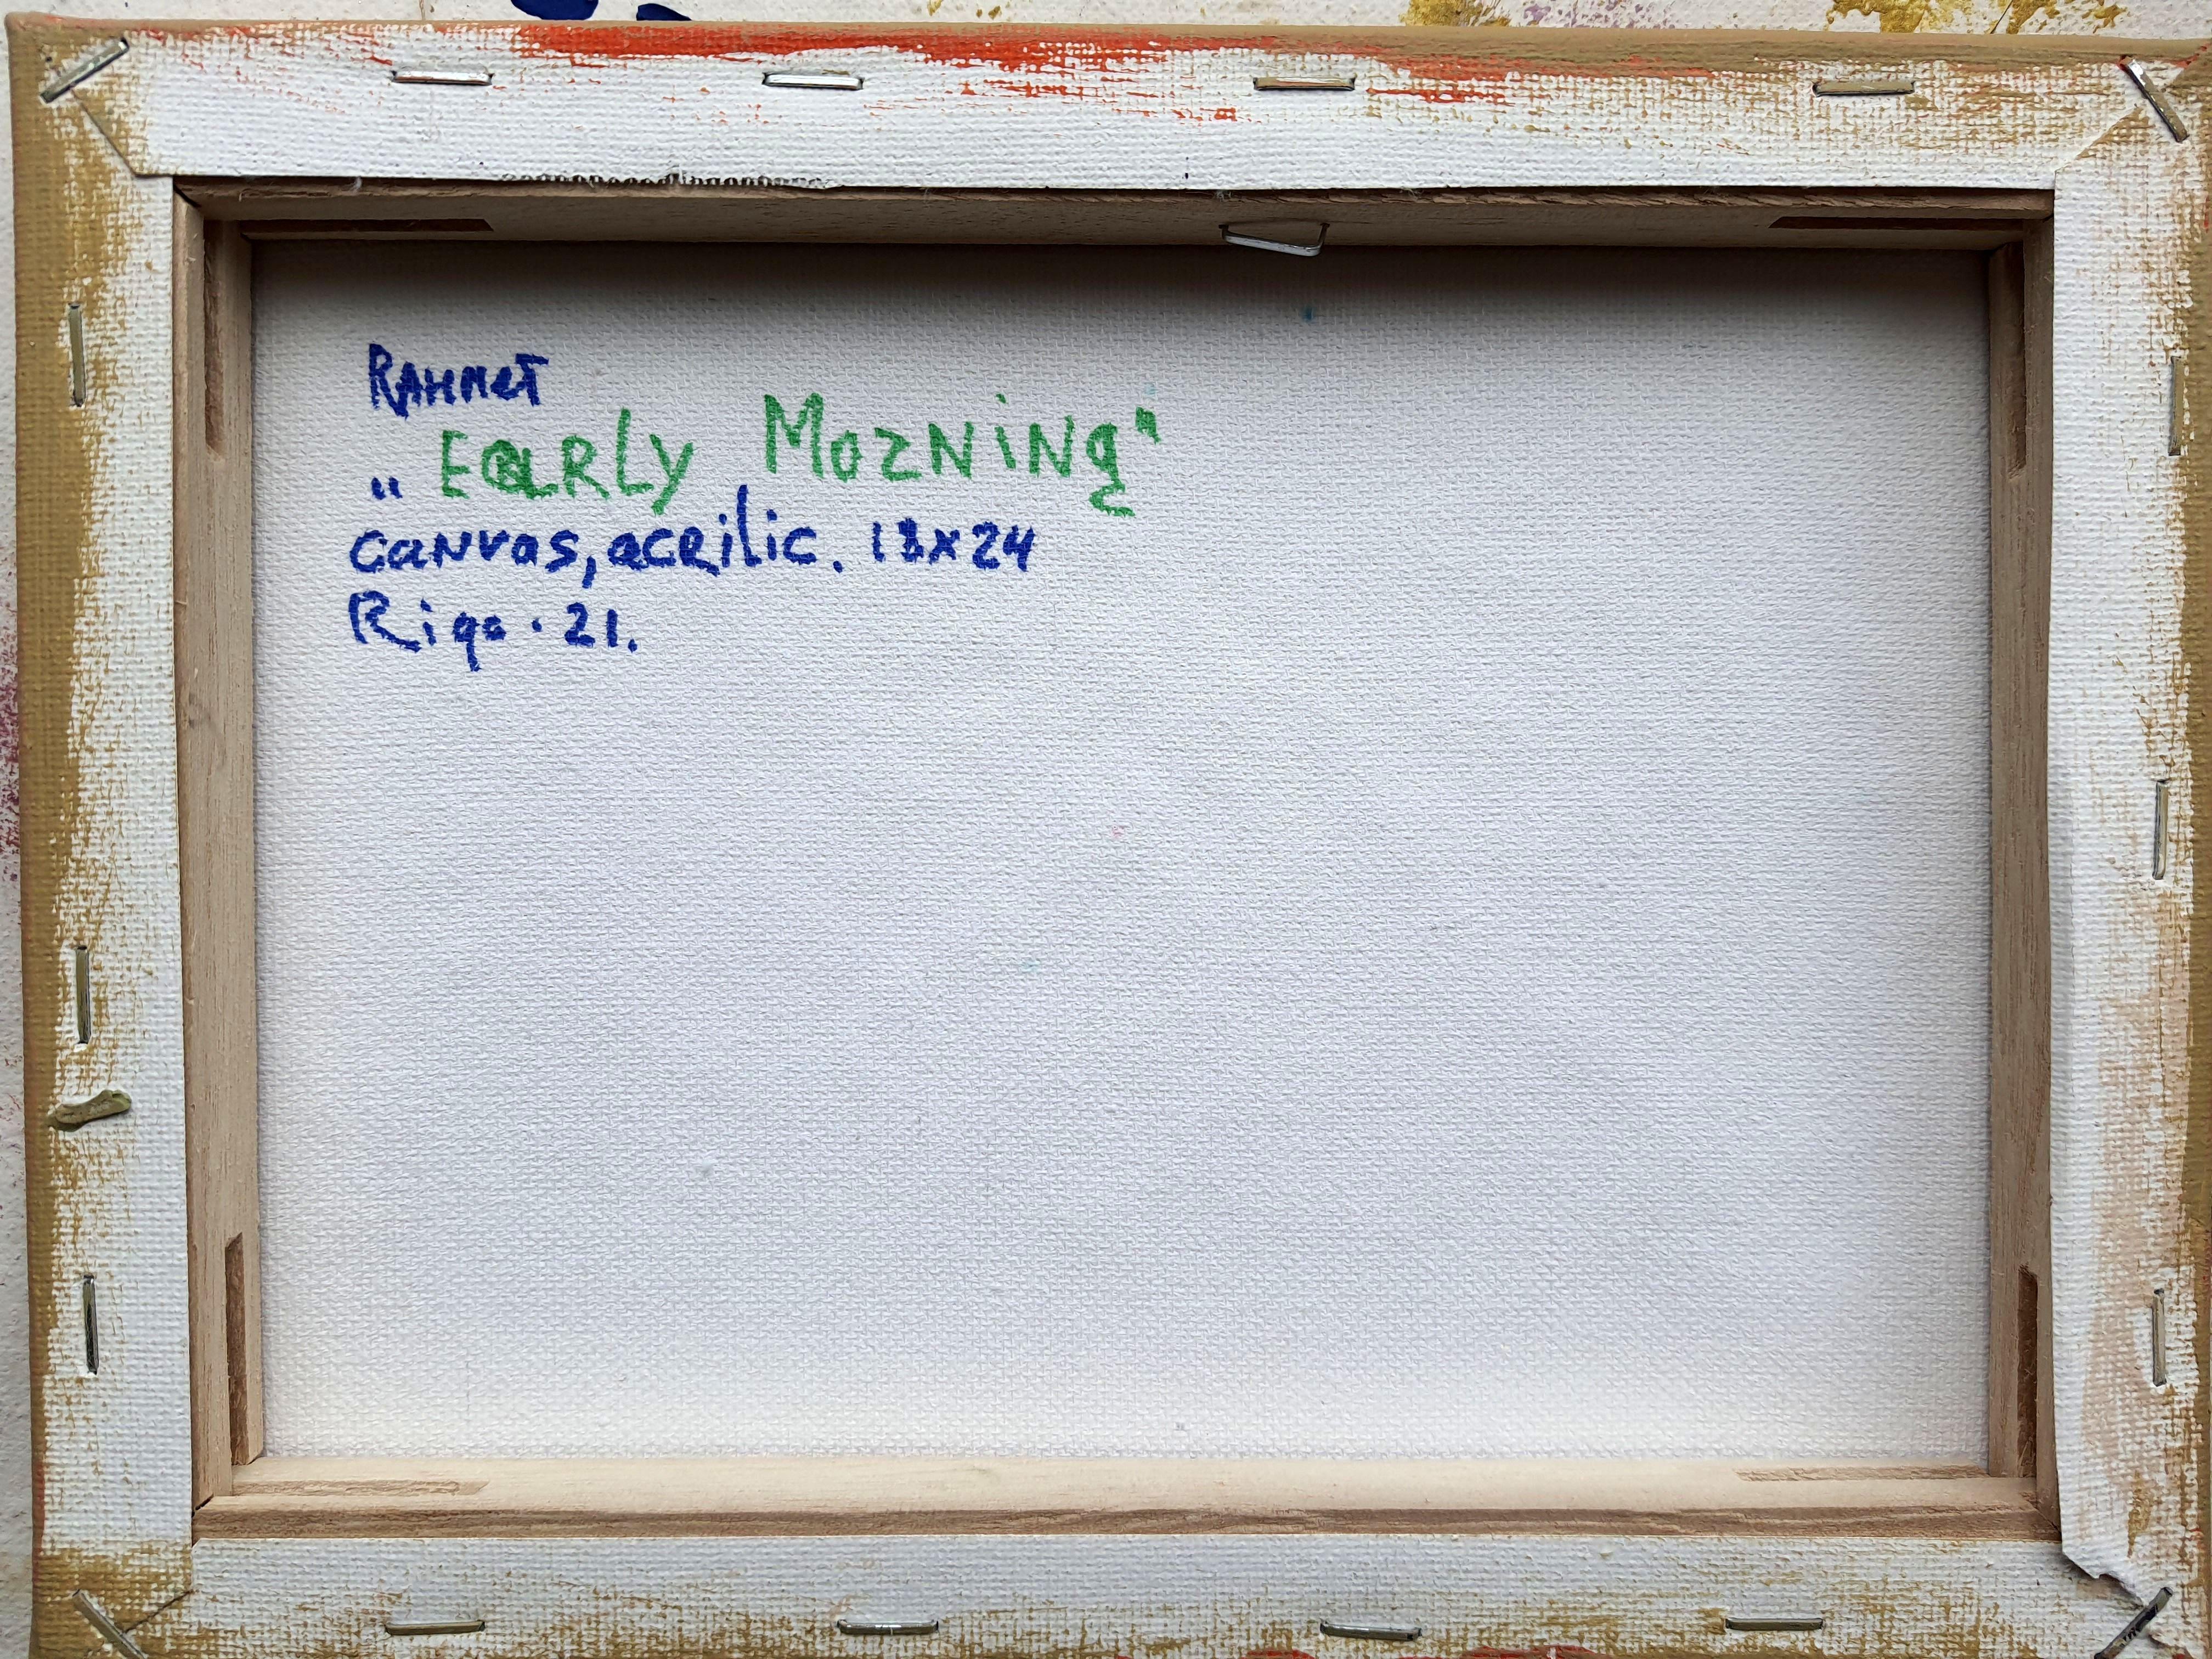 Rahmet
„Early Morning"
canvas, acrilic. 18x24
Riga. 21.